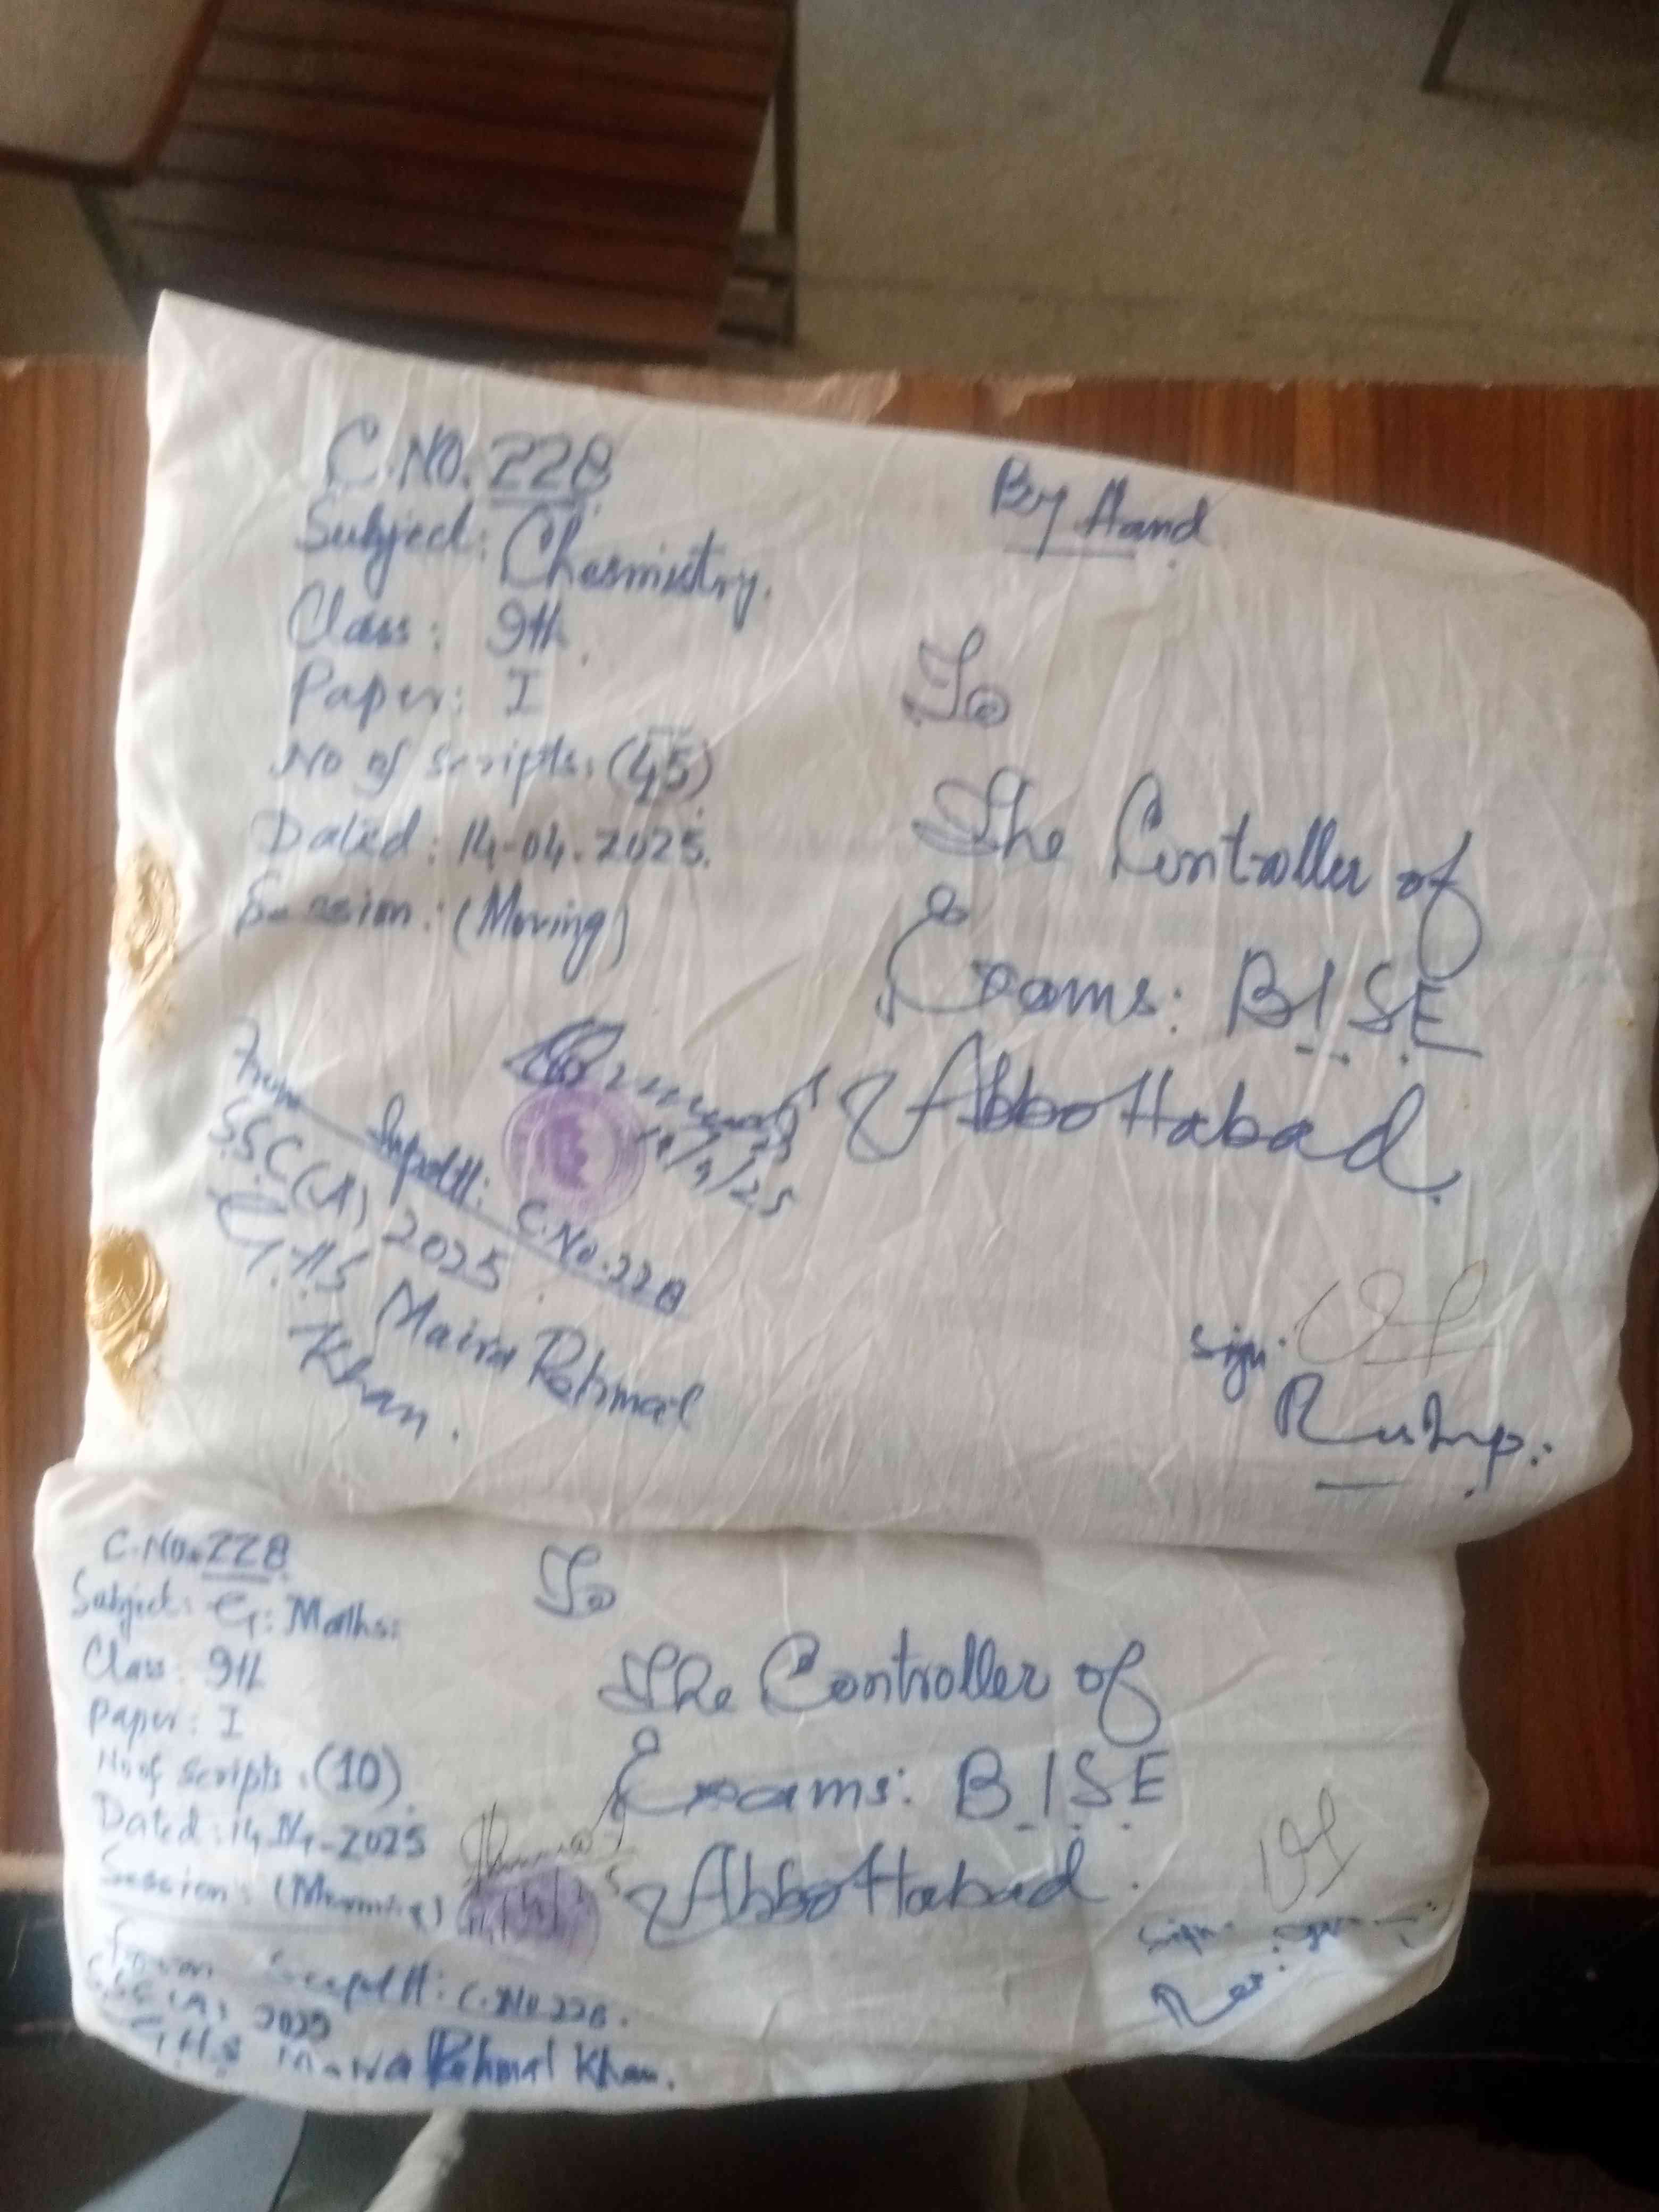 C.NO. 228
Subject: Chesmistry.
Class: 9th.
Paper: I
No of scripts: (45)
Dated: 14-04-2025.
Session: (Moring)
By Hand
To
The Controller of
Exams: B.I.S.E
Abbottabad.
14/4/25
From Supdtt: C.No. 228
SSC(A) 2025
G.H.S Maira Rehmat
Khan.
Sign:
C.No. 228
Subject: G: Maths:
Class: 9th
Paper: I
No of scripts: (10)
Dated: 14-04-2025
Session: (Morning)
To
The Controller of
Exams: B.I.S.E
Abbottabad.
From Supdtt: C.No. 228.
SSC(A) 2025
G.H.S Maira Rehmat Khan.
Sign: